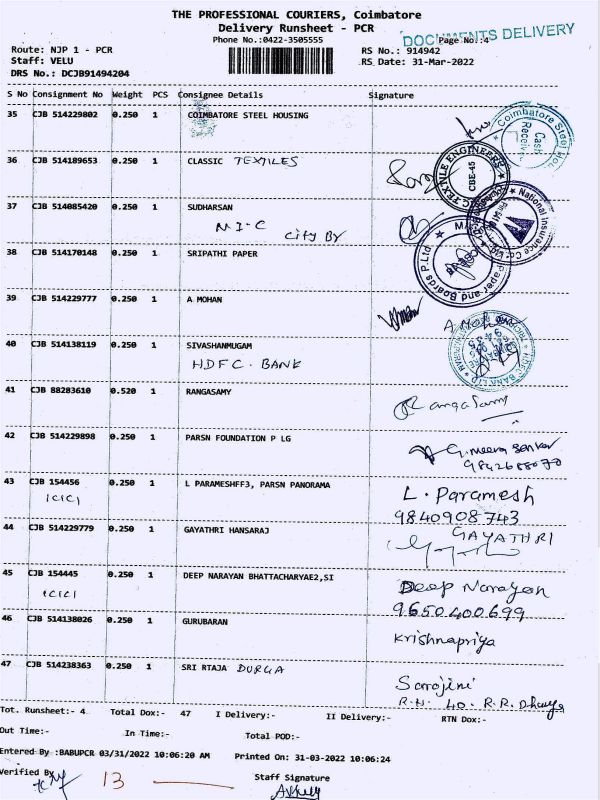 THE PROFESSIONAL COURIERS, Coimbatore
Delivery Runsheet - PCR
Phone No.:0422-3505555
DOCUMENTS DELIVERY
Page No.:4
Route: NJP 1 - PCR
RS No.: 914942
Staff: VELU
RS Date: 31-Mar-2022
DRS No.: DCJB91494204
S No Consignment No Weight PCS Consignee Details Signature
35 CJB 514229802 0.250 1 COIMBATORE STEEL HOUSING
Coimbatore Steel
Cash
36 CJB 514189653 0.250 1 CLASSIC TEXTILES
CBE-45
37 CJB 514085420 0.250 1 SUDHARSAN
N.I-C City By
National Insurance Co. Ltd.
38 CJB 514170148 0.250 1 SRIPATHI PAPER
Paper and Boards P.Ltd.
39 CJB 514229777 0.250 1 A MOHAN
40 CJB 514138119 0.250 1 SIVASHANMUGAM
HDFC. BANK
41 CJB 88283610 0.520 1 RANGASAMY
Rangasamy
42 CJB 514229898 0.250 1 PARSN FOUNDATION P LG
43 CJB 154456 0.250 1 L PARAMESHFF3, PARSN PANORAMA
ICICI
L. Paramesh
9840908743
44 CJB 514229779 0.250 1 GAYATHRI HANSARAJ
GAYATHRI
45 CJB 154445 0.250 1 DEEP NARAYAN BHATTACHARYAE2,SI
ICICI
Deep Narayan
9650400699
46 CJB 514138026 0.250 1 GURUBARAN
Krishnapriya
47 CJB 514238363 0.250 1 SRI RTAJA DURGA
Sarojini
Tot. Runsheet:- 4 Total Dox:- 47 I Delivery:- II Delivery:- RTN Dox:-
Out Time:- In Time:- Total POD:-
Entered By :BABUPCR 03/31/2022 10:06:20 AM Printed On: 31-03-2022 10:06:24
Verified By
13
Staff Signature